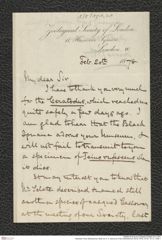 Zoological Society of London,
11 Hanover Square,
London. W
Feb. 20th 1874
My dear Sir
I have to thank you very much
for the Ceratodus, which reached me
quite safely a few days ago. I
am glad to hear that the Black
Iguana is now your Museum, I
will not fail to transmit to you
a specimen of when
he dies.
It may interest you to hear that
Mr Sclater described & named still
another species of Cassowary
at the meeting of our Society, last